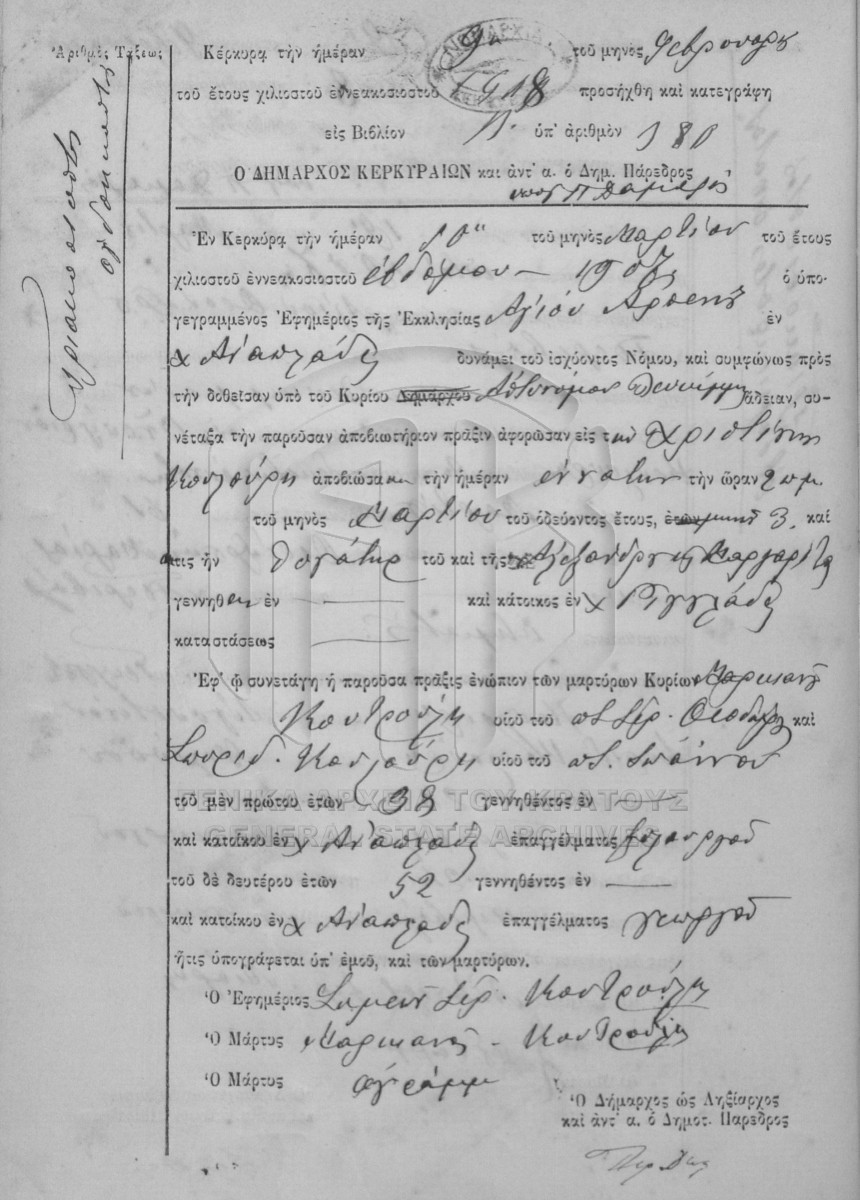 Ἀριθμὸς Τάξεως
Τριακοσιοστὴ
ὀγδοηκοστὴ
Κέρκυρα τὴν ἡμέραν 9η τοῦ μηνὸς Φεβρουαρίου
τοῦ ἔτους χιλιοστοῦ ἐννεακοσιοστοῦ 1918 προσήχθη καὶ κατεγράφη
εἰς Βιβλίον ὑπ' ἀριθμὸν 380
Ὁ ΔΗΜΑΡΧΟΣ ΚΕΡΚΥΡΑΙΩΝ καὶ ἀντ' α. ὁ Δημ. Πάρεδρος
Ἐν Κερκύρᾳ τὴν ἡμέραν 10η τοῦ μηνὸς Μαρτίου τοῦ ἔτους
χιλιοστοῦ ἐννεακοσιοστοῦ ἑβδόμου – 1907 ὁ ὑπο-
γεγραμμένος Ἐφημέριος τῆς Ἐκκλησίας Ἁγίου Ἀρσενίου ἐν
χ Ἀναπλάδες δυνάμει τοῦ ἰσχύοντος Νόμου, καὶ συμφώνως πρὸς
τὴν δοθεῖσαν ὑπὸ τοῦ Κυρίου Δημάρχου Ἀστυνόμου Λευκίμμης ἄδειαν, συ-
νέταξα τὴν παροῦσαν ἀποβιωτήριον πρᾶξιν ἀφορῶσαν εἰς τὴν Χριστίνην
Κουλούρη ἀποβιώσασαν τὴν ἡμέραν ἐννάτην τὴν ὥραν 2 πμ.
τοῦ μηνὸς Μαρτίου τοῦ ὁδεύοντος ἔτους, ἐτῶν μηνῶν 3, καὶ
ἥτις ἦν θυγάτηρ τοῦ καὶ τῆς Ἀλεξάνδρου Μαργαρίτας
γεννηθεῖσα ἐν — καὶ κάτοικος ἐν χ Ριγγλάδες
καταστάσεως —
Ἐφ' ᾧ συνετάγη ἡ παροῦσα πρᾶξις ἐνώπιον τῶν μαρτύρων Κυρίων Μαρκιανοῦ
Κουτρούλη υἱοῦ τοῦ Θεοδώρου καὶ
Σπυρίδ. Κουλούρη υἱοῦ τοῦ π. Ἰωάννου
τοῦ μὲν πρώτου ἐτῶν 38 γεννηθέντος ἐν —
καὶ κατοίκου ἐν χ Ἀναπλάδες ἐπαγγέλματος ξυλουργοῦ
τοῦ δὲ δευτέρου ἐτῶν 52 γεννηθέντος ἐν —
καὶ κατοίκου ἐν χ Ἀναπλάδες ἐπαγγέλματος γεωργοῦ
ἥτις ὑπογράφεται ὑπ' ἐμοῦ, καὶ τῶν μαρτύρων.
Ὁ Ἐφημέριος Συμεὼν Ἱερ. Κουτρούλης
Ὁ Μάρτυς Μαρκιανὸς – Κουτρούλης
Ὁ Μάρτυς ἀγράμμ
Ὁ Δήμαρχος ὡς Ληξίαρχος
καὶ ἀντ' α. ὁ Δημοτ. Πάρεδρος
ΓΕΝΙΚΑ ΑΡΧΕΙΑ ΤΟΥ ΚΡΑΤΟΥΣ
GENERAL STATE ARCHIVES